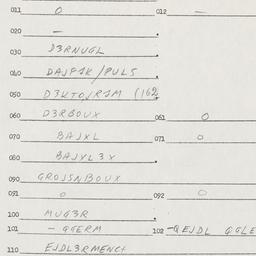 011 O 012 —
020 —
030 D3RNUGL
040 DAJP1K/PULS
050 D3KTO,R1M (162
060 D3RBOUX 061 O
070 BAJXL 071 O
080 BAJXL3X
090 GROJSNBOUX
091 O 092 O
100 MUG3R
101 - GGERM 102 -GEJDL GGLE
110 EJDL3RMENCH